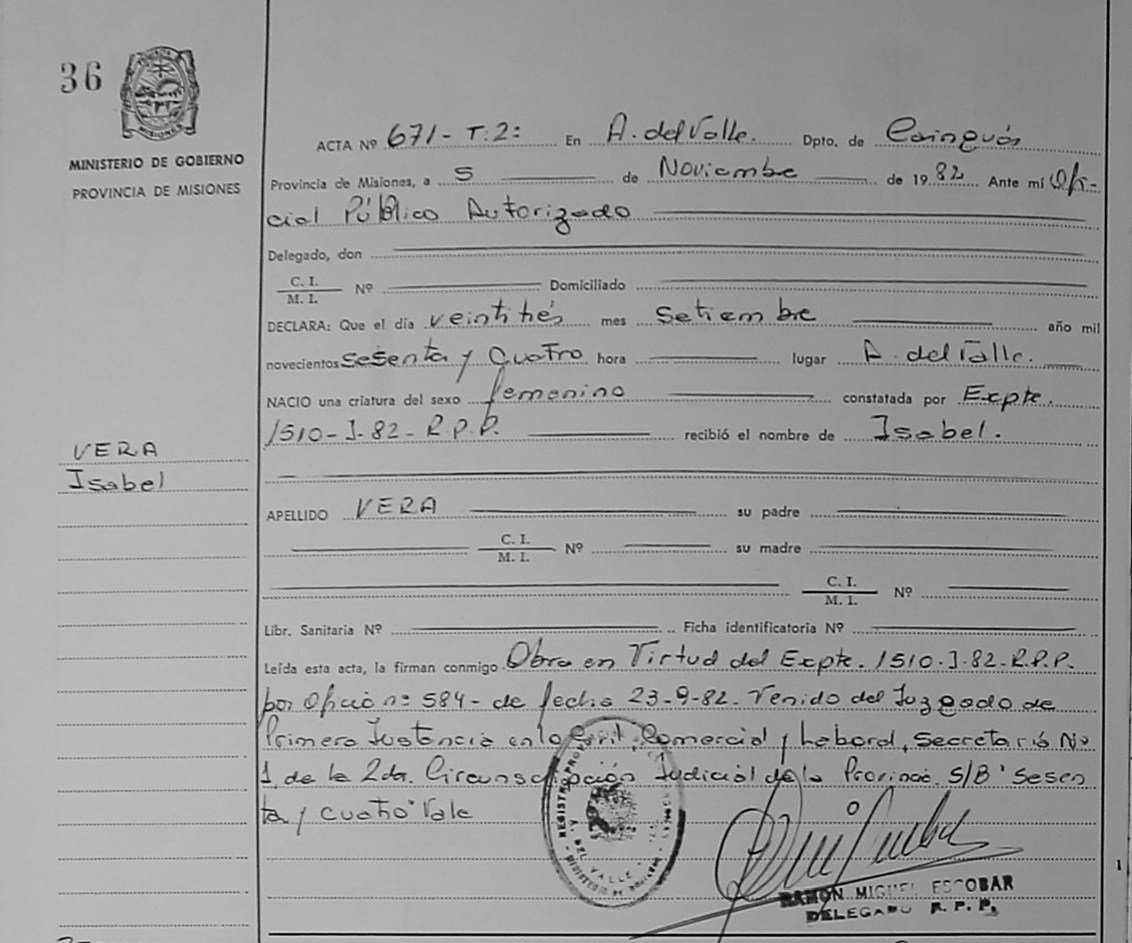 36
MISIONES
MINISTERIO DE GOBIERNO
PROVINCIA DE MISIONES
VERA
Isabel
ACTA Nº 671- T:2: En A. del Valle. Dpto. de Cainguás
Provincia de Misiones, a 5 de Noviembre de 1982 Ante mí Ofi-
cial Público Autorizado
Delegado, don
C. I.
M. I. Nº Domiciliado
DECLARA: Que el día veintitrés mes Setiembre año mil
novecientos sesenta y cuatro hora lugar A. del Valle.
NACIO una criatura del sexo femenino constatada por Expte.
1510-J-82-R.P.P. recibió el nombre de Isabel.
APELLIDO VERA su padre
C. I.
M. I. Nº su madre
C. I.
M. I. Nº
Libr. Sanitaria Nº Ficha identificatoria Nº
Leída esta acta, la firman conmigo Obra en Virtud del Expte. 1510-J-82-R.P.P.
por Oficio nº 584- de fecha 23-9-82. Venido del Juzgado de
Primera Instancia en lo Civil, Comercial y Laboral, Secretaría Nº
1, de la 2da. Circunscripción Judicial de la Provincia. S/B "Sesen
ta y cuatro" Vale
RAMON MIGUEL ESCOBAR
DELEGADO R. P. P.